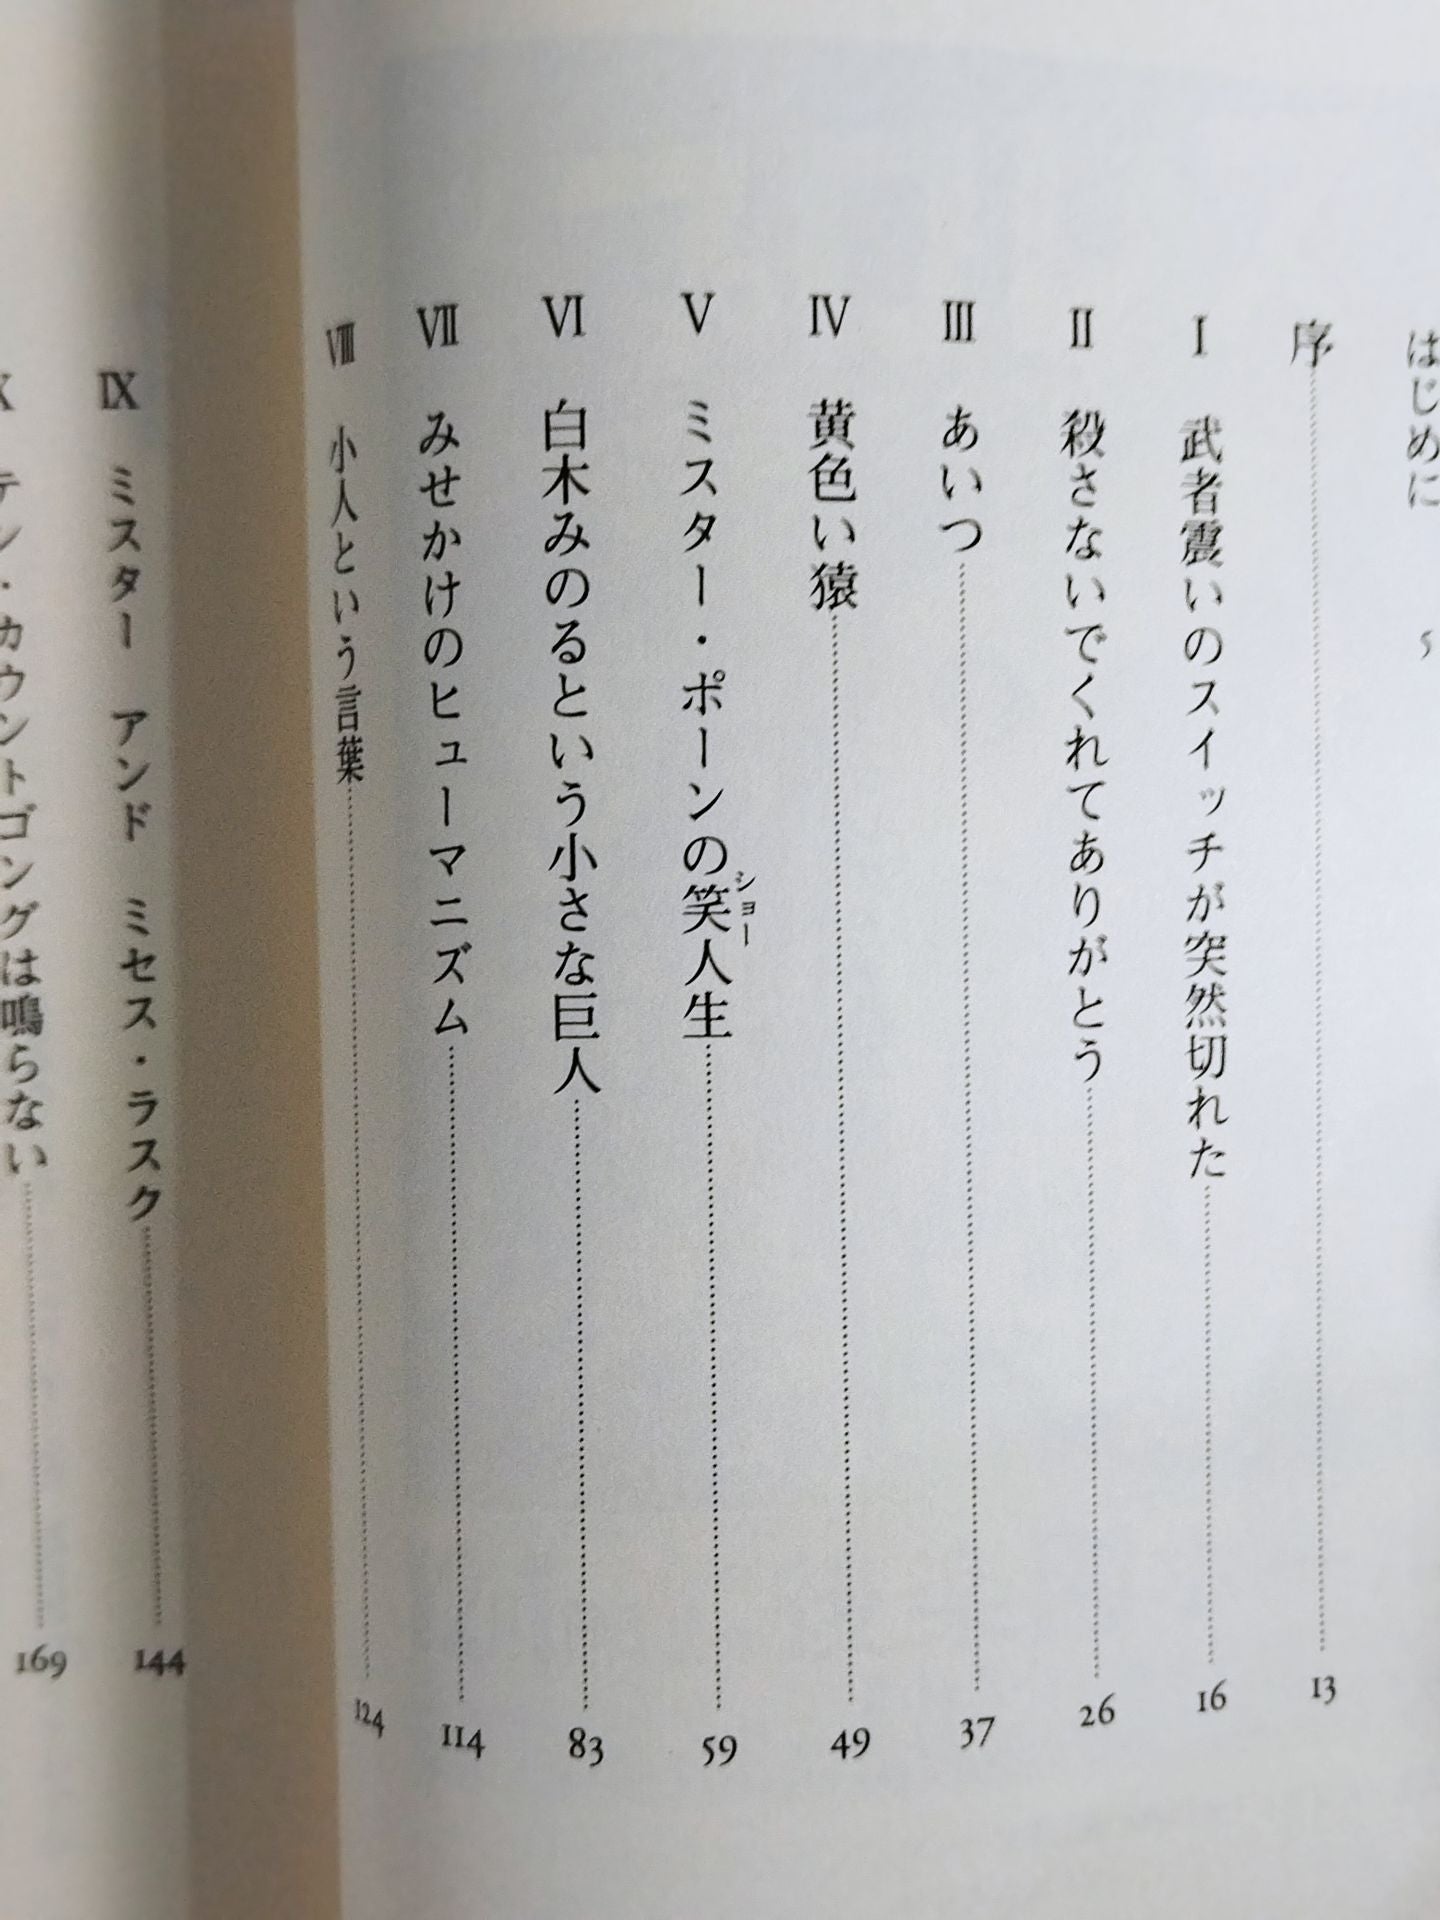 はじめに 5
序 13
Ⅰ 武者震いのスイッチが突然切れた 16
Ⅱ 殺さないでくれてありがとう 26
Ⅲ あいつ 37
Ⅳ 黄色い猿 49
Ⅴ ミスター・ポーンの笑人生 59
ショー
Ⅵ 白木みのるという小さな巨人 83
Ⅶ みせかけのヒューマニズム 114
Ⅷ 小人という言葉 124
Ⅸ ミスター アンド ミセス・ラスク 144
Ⅹ テン・カウントゴングは鳴らない 169